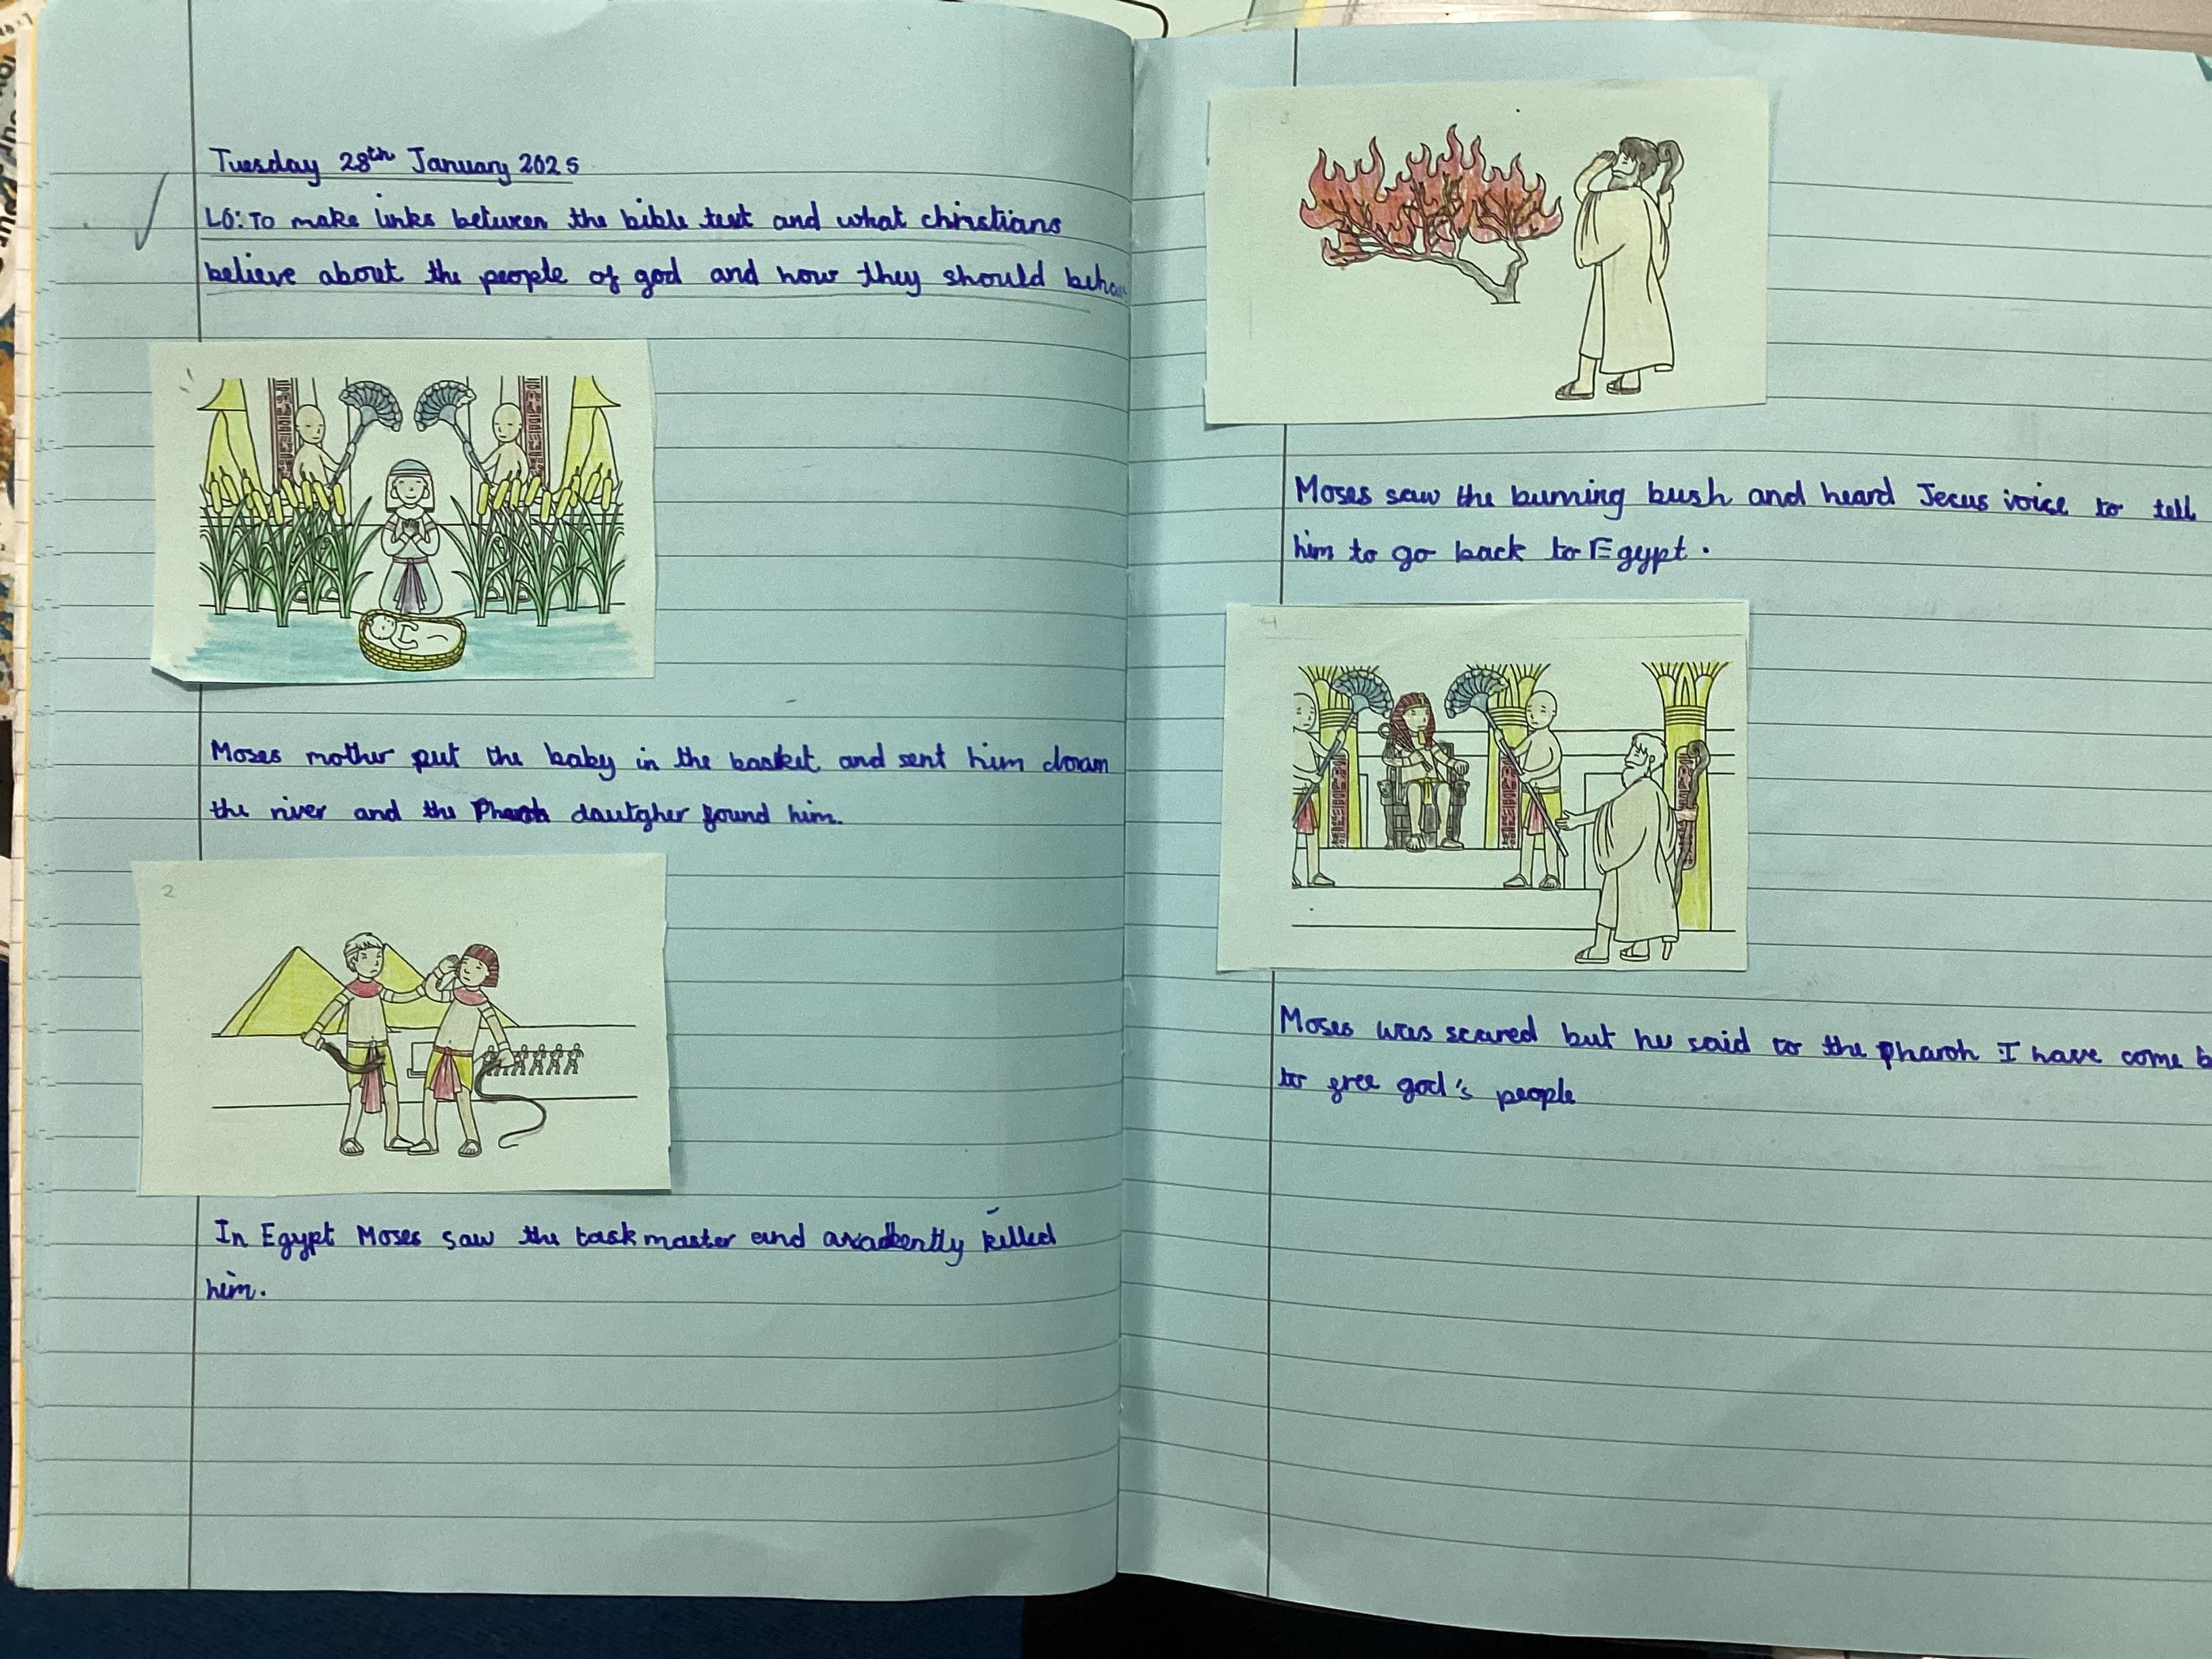 Tuesday 28th January 2025
LO: To make links between the bible text and what christians
believe about the people of god and how they should
Moses mother put the baby in the basket and sent him down
the river and the dautgher found him.
2
In Egypt Moses saw the taskmaster and killed
him.
Moses saw the burning bush and heard Jecus voice to tell
him to go back to Egypt.
4
Moses was scared but he said to the pharoh I have come
to free god's people